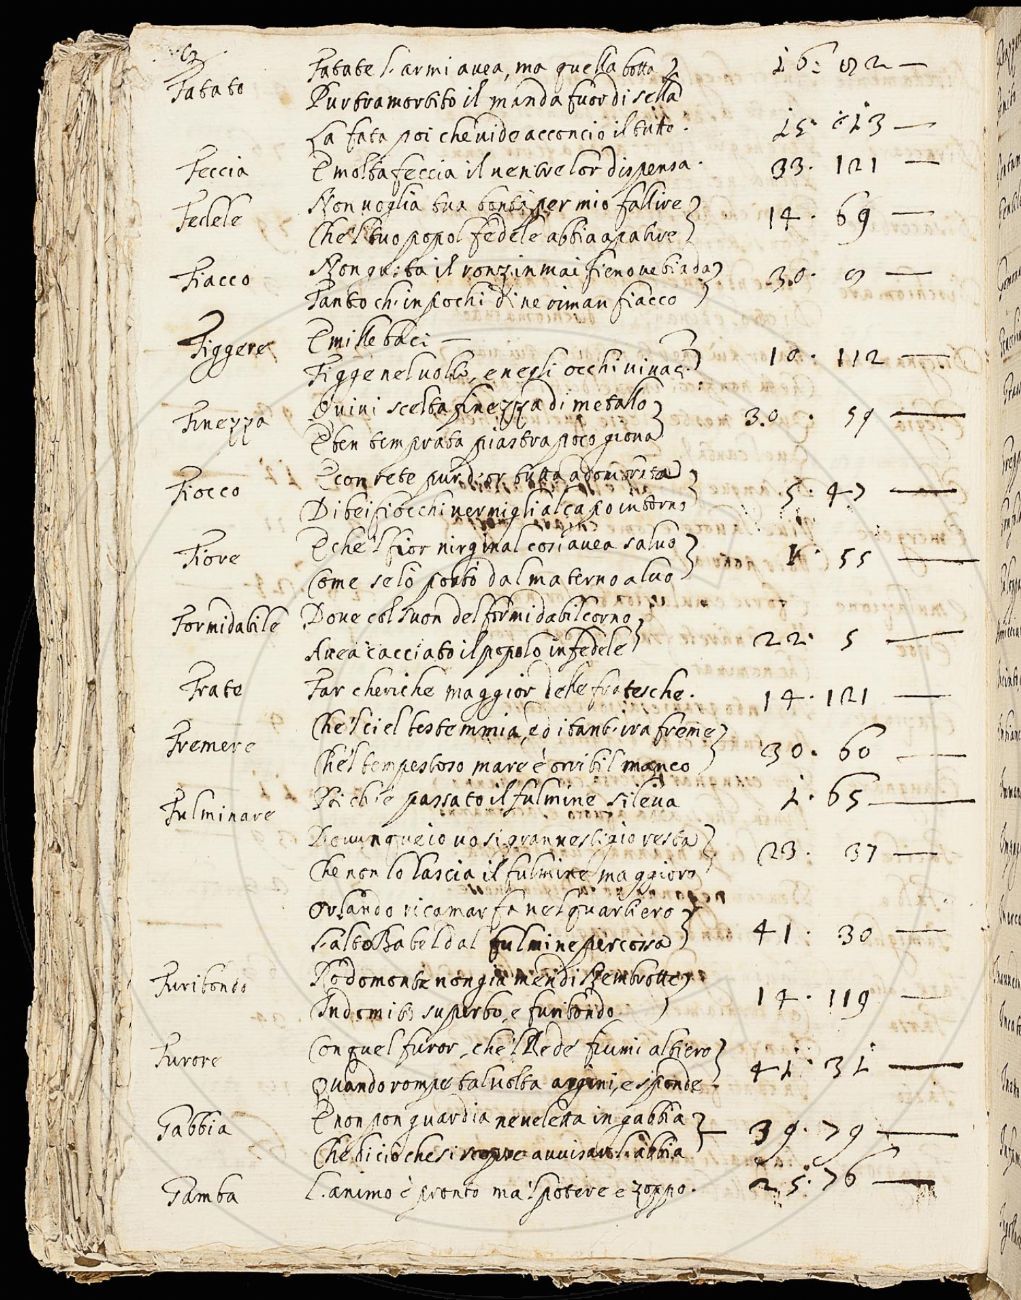 Fatato Fatate l'armi avea, ma quella botta } 16: 82 —
Pur tramortito il manda fuor di sella
La fata poi che vide acconcio il tutto. 15 · 13 —
Feccia E molta feccia il ventre lor dispensa. 33. 121 —
Fedele Non voglia tua bontà per mio fallire } 14. 69 —
Che'l tuo popol fedele abbia a patire
Fiacco Non gusta il ronzin mai fieno ne biada } 30. 9 —
Tanto ch'in pochi dì ne riman fiacco
Figgere E mille baci — } 10. 112 —
Figge nel volto, e negli occhi vivaci.
Finezza Quivi scelta finezza di metallo } 30. 59 —
E ben temprata piastra poco giova
Fiocco E con rete pur d'or tutta adornata } 5. 47 —
Di bei fiocchi vermigli al capo intorno
Fiore E che'l fior virginal cosi avea salvo } 1. 55 —
Come se lo portò dal materno alvo
Formidabile Dove col suon del formidabil corno } 22. 5 —
Avea cacciato il popolo infedele
Frate Far cheriche maggior delle fratesche. 14. 121 —
Fremere Che'l ciel bestemmia, e di tant'ira freme } 30. 60 —
Che'l tempestoso mare è orribil manco
Fulminare Poi ch'è passato il fulmine si leva 1. 65 —
Dovunque io vo si gran vestigio resta } 23. 37 —
Che non lo lascia il fulmine maggiore
Orlando ricamar fa nel quartiero } 41. 30 —
L'alto Babel dal fulmine percosso
Furibondo Rodomonte non già men di Nembrotte } 14. 119 —
Indomito superbo, e furibondo
Furore Con quel furor, che'l Re de fiumi altiero } 41. 31 —
Quando rompe talvolta argini, e sponde
Gabbia E non pon guardia ne veletta in gabbia } 39. 79 —
Che di ciò che si scopre avvisar l'abbia
Gamba L'animo è pronto ma'l potere è zoppo. 25. 76 —